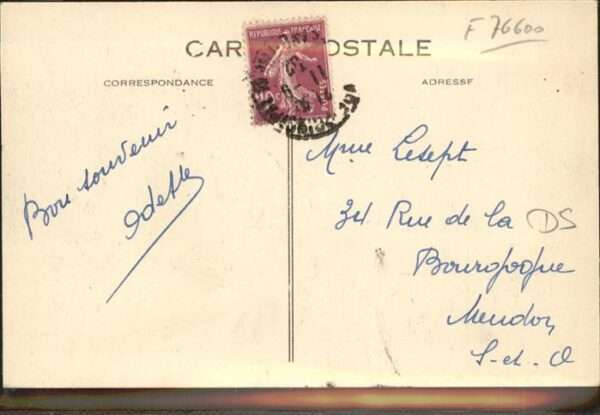 F 76600
CARTE POSTALE
CORRESPONDANCE
ADRESSE
REPUBLIQUE FRANÇAISE
POSTES
Bon souvenir
Odette
Mme Lesept
34 Rue de la
DS
Bourgogne
Meudon
S-et-O